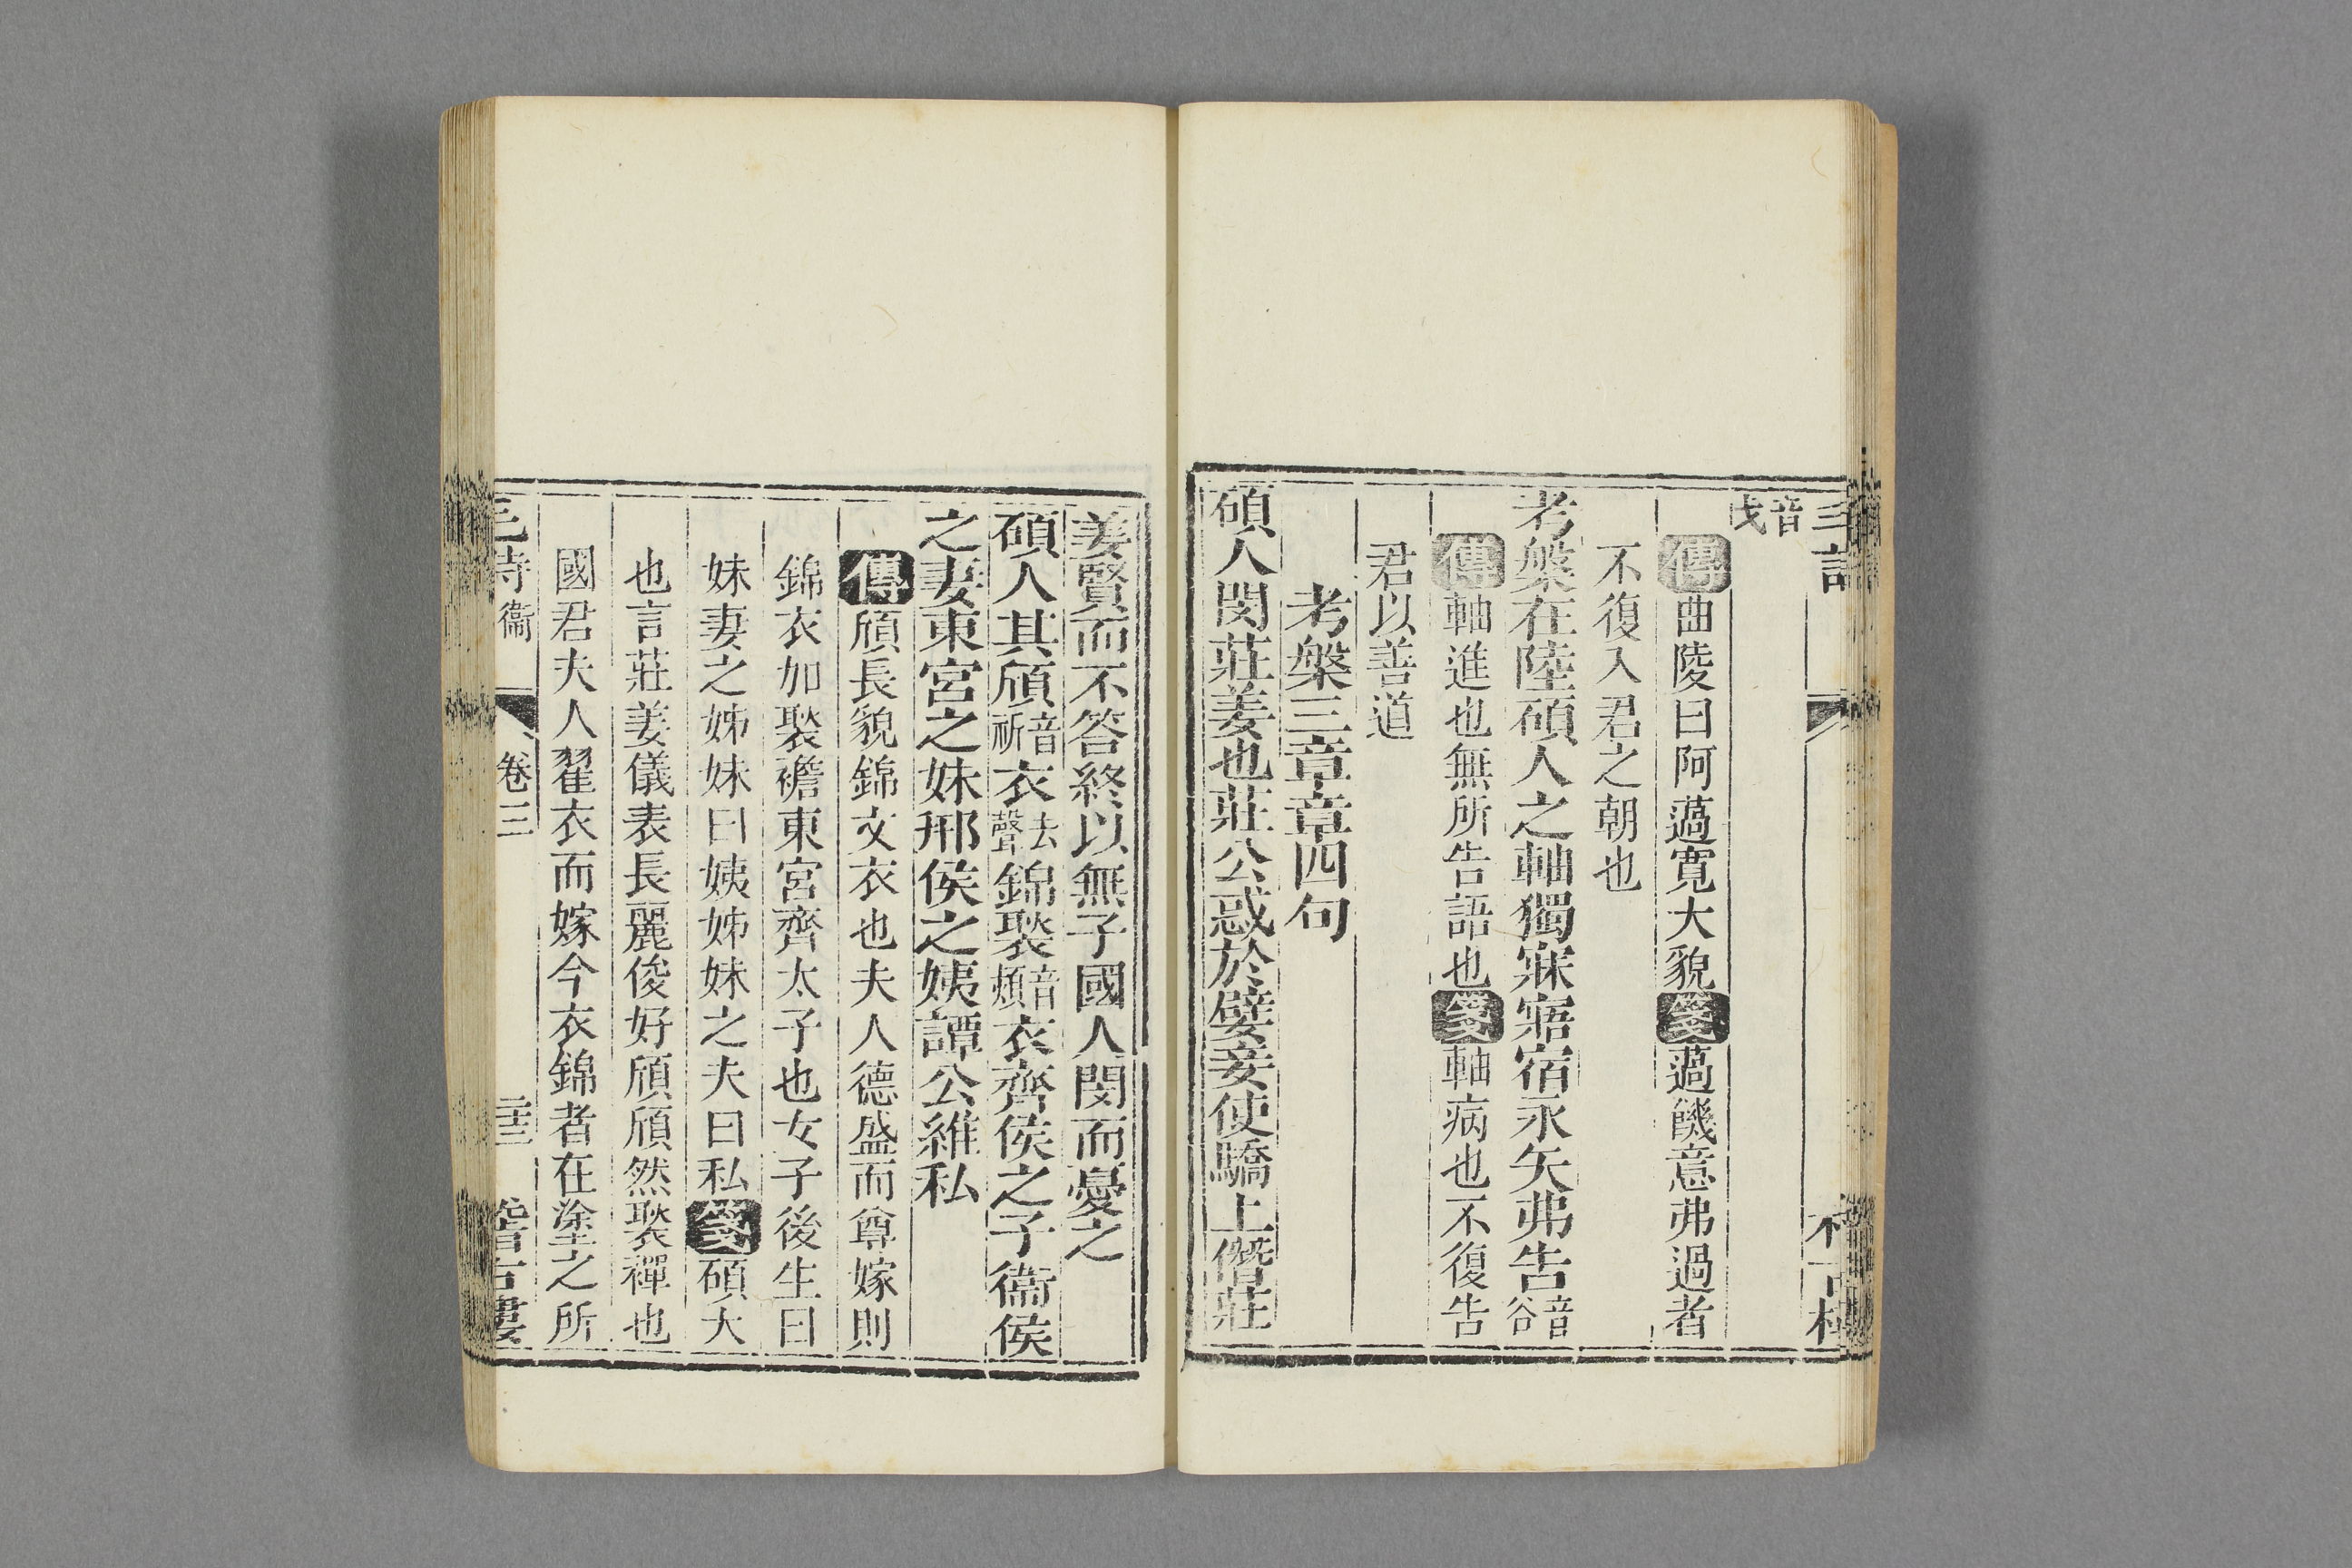 音戈
傳曲陵曰阿薖寬大貌箋薖饑意弗過者
不復入君之朝也
考槃在陸碩人之軸獨寐寤宿永矢弗告音谷
傳軸進也無所告語也箋軸病也不復告
君以善道
考槃三章章四句
碩人閔莊姜也莊公惑於嬖妾使驕上僭莊
姜賢而不答終以無子國人閔而憂之
碩人其頎音祈衣去聲錦褧音熲衣齊侯之子衞侯
之妻東宮之妹邢侯之姨譚公維私
傳頎長貌錦文衣也夫人德盛而尊嫁則
錦衣加褧襜東宮齊太子也女子後生曰
妹妻之姊妹曰姨姊妹之夫曰私箋碩大
也言莊姜儀表長麗俊好頎頎然褧襌也
國君夫人翟衣而嫁今衣錦者在塗之所
毛詩 衞 卷三 二十三 稽古樓